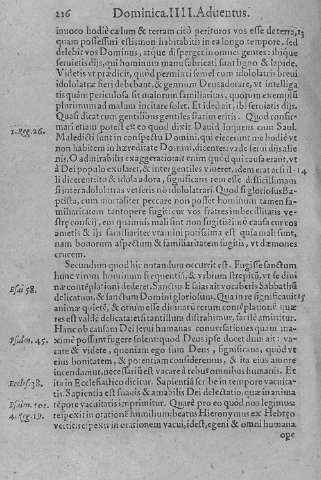 226 Dominica. IIII. Aduentus.
inuoco hodiè cælum & terram citò perituros vos esse de terra, 13
quam possessuri estis: non habitabitis in ea longo tempore, sed
delebit vos Dominus, atque disperget in omnes gentes: ibique
seruietis dijs, qui hominum manu fabricati sunt ligno & lapide.
Videtis vt prædicit, quòd permixti semel cum idololatris breui
idololatræ fieri debebant, & genuinum Deus adorare, vt intelliga
tis quàm periculosa sit malorum familiaritas, quorum exemplis
plurimum ad malum incitare solet. Et ideò ait, ibi seruietis dijs.
Quasi dicat cum gentilibus gentiles statim eritis. Quod confir-
1. Reg. 26. mari etiam potest ex eo quod dixit Dauid loquens cum Saul.
Maledicti sunt in conspectu Domini, qui eiecerunt me hodiè vt
non habitem in hæreditate Domini, dicentes: vade serui dijs alie
nis. O admirabilis exaggeratio: ait enim quòd qui causa erant, vt
à Dei populo exularet, & inter gentiles viueret, idem erat ac si il- 14
li dicerent: ito & idola adora, significans rem esse difficillimam
si inter idololatras verseris nõ idololatrari. Quod si gloriosus Ba-
ptista, cum mortaliter peccare non posset hominum tamen fa-
miliaritatem tantopere fugit: cur vos fratres imbecillitatis ve-
stræ conscij, eos quamuis mali sint non fugitis? nõ causa cur eos
ametis & ijs familiariter vtamini potissima est quia mali sunt,
nam bonorum aspectum & familiaritatem fugitis, vt dæmones
crucem.
Secundum quod hîc notandum occurrit est. Fugisse sanctum
hunc virum hominum frequentiã, & vrbium strepitũ, vt se diui
Esai 58. næ contẽplationi dederet. Sanctus Esaias ait vocaberis Sabbathũ
delicatum, & sanctum Domini gloriosum. Qua in re significauit 15
animæ quietẽ, & otium esse diuinarũ rerum contẽplationẽ quæ
res est valdè delicata: etsi tantillum distrahimur, facilè amittitur.
Hanc ob causam Dei serui humanas conuersationes quàm ma-
Psalm. 45. ximè possunt fugere solent: quod Deus ipse docet dum ait: va-
cate & videte, quoniam ego sum Deus, significans, quòd vt
eius bonitatem, & potentiam consideremus, & ita eius amore
incendamur, necessariũ est vacare à rebus omnibus humanis. Et
Eccles. 38. ita in Ecclesiastico dicitur. Sapientia scribe in tempore vacuita-
tis. Sapientia est suauis & amabilis Dei delectatio, quæ in anima
Psalm. 101. tẽpore vacuitatis imprimitur. Quare pro eo quòd nos legimus:
4. Reg. 19. respexit in orationẽ humilium: beatus Hieronymus ex Hebręo
vertit: respexit in orationem vacui, idest, egeni & omni humana
ope